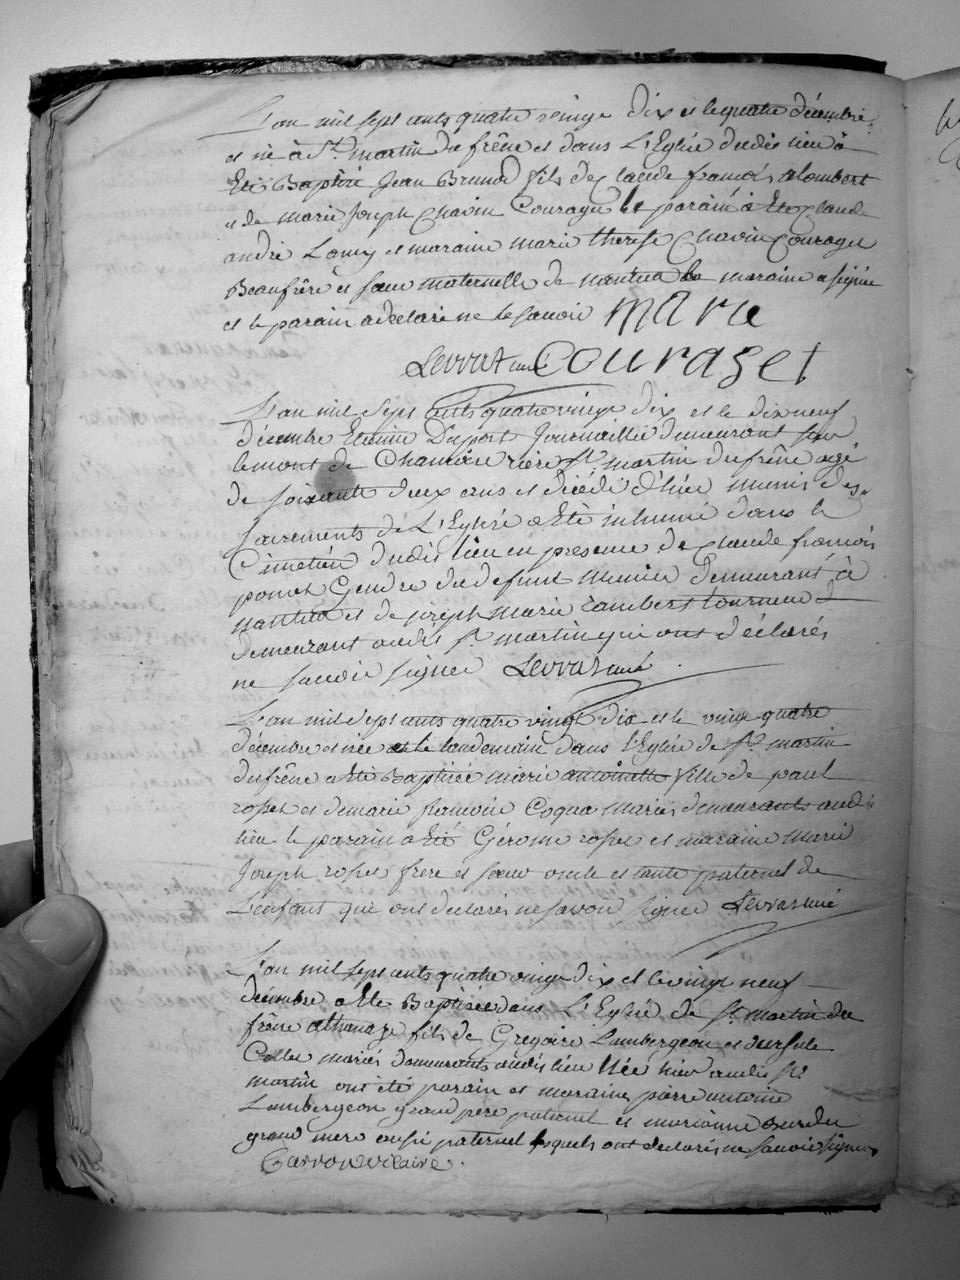 L'an mil sept cents quatre vingt dix et le quatre décembre
est né à St. martin du frêne et dans L'Eglise dudit lieu à
Eté Baptisé Jean Brund fils de Claude françois alombert
et de marie Joseph Chavin Couraget le parain à Eté Claude
andré Lomy et maraine marie therese Chavin Couraget
Beaufrère et sœur maternelle de nantua la maraine a signée
et le parain a declaré ne le savoir marie
Levrat curé Couraget
L'an mil sept cents quatre vingt dix et le dix neuf
décembre Etienne Duport Journaillié demeurant sur
le mont de Chamoise rière St. martin du frêne agé
de soixante deux ans et décédé d'hier munis des
sacrements de L'Eglise a Eté inhumé dans le
Cimetière dudit lieu en presence de Claude françois
poncet Gendre du defunt demeurant à
nantua et de joseph marie Lambert tourneur
demeurant audit St. martin qui ont déclarés
ne savoir signer Levrat curé
L'an mil sept cents quatre vingt dix et le vingt quatre
décembre est née et le lendemain dans l'Eglise de St. martin
du frêne a Eté Baptisée marie antoinette fille de paul
rosset et de marie françoise Coqua mariés demeurants audit
lieu le parain a eté Gérosme rosset et maraine marie
Joseph rosset frere et sœur oncle et tante paternel de
L'enfant qui ont declarés ne savoir signer Levrat curé
L'an mil sept cents quatre vingt dix et le vingt neuf
décembre a Eté Baptisée dans L'Eglise de St. martin du
frêne athanaze fils de Grégoire Lambergeon et d'ursule
Collet mariés demeurants audit lieu née hier audit St.
martin ont été parain et maraine pierre antoine
Lambergeon grand père paternel et marianne
grand mere aussi paternel lesquels ont declarés ne savoir signer
Carron vicaire.